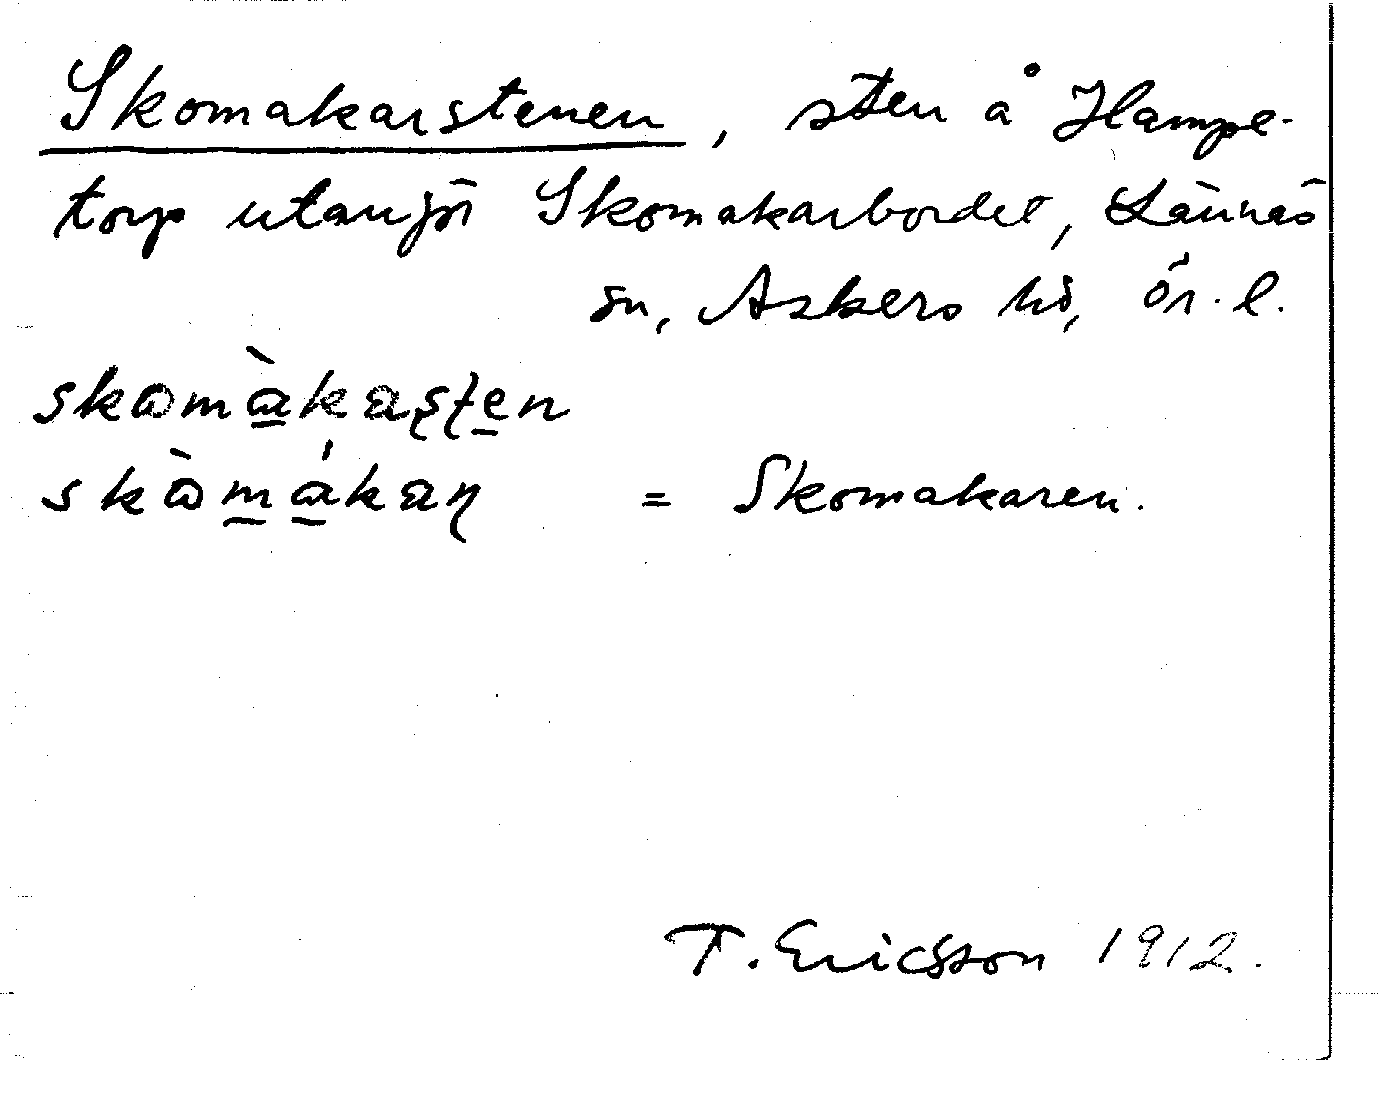 Skomakarstenen, sten å Hampe-
torp utanför Skomakarbordet, Lännäs
sn, Askers hd, Ör. l.
skomàkas̨ţen
skòmákaņ = Skomakaren.
T. Ericsson 1912.